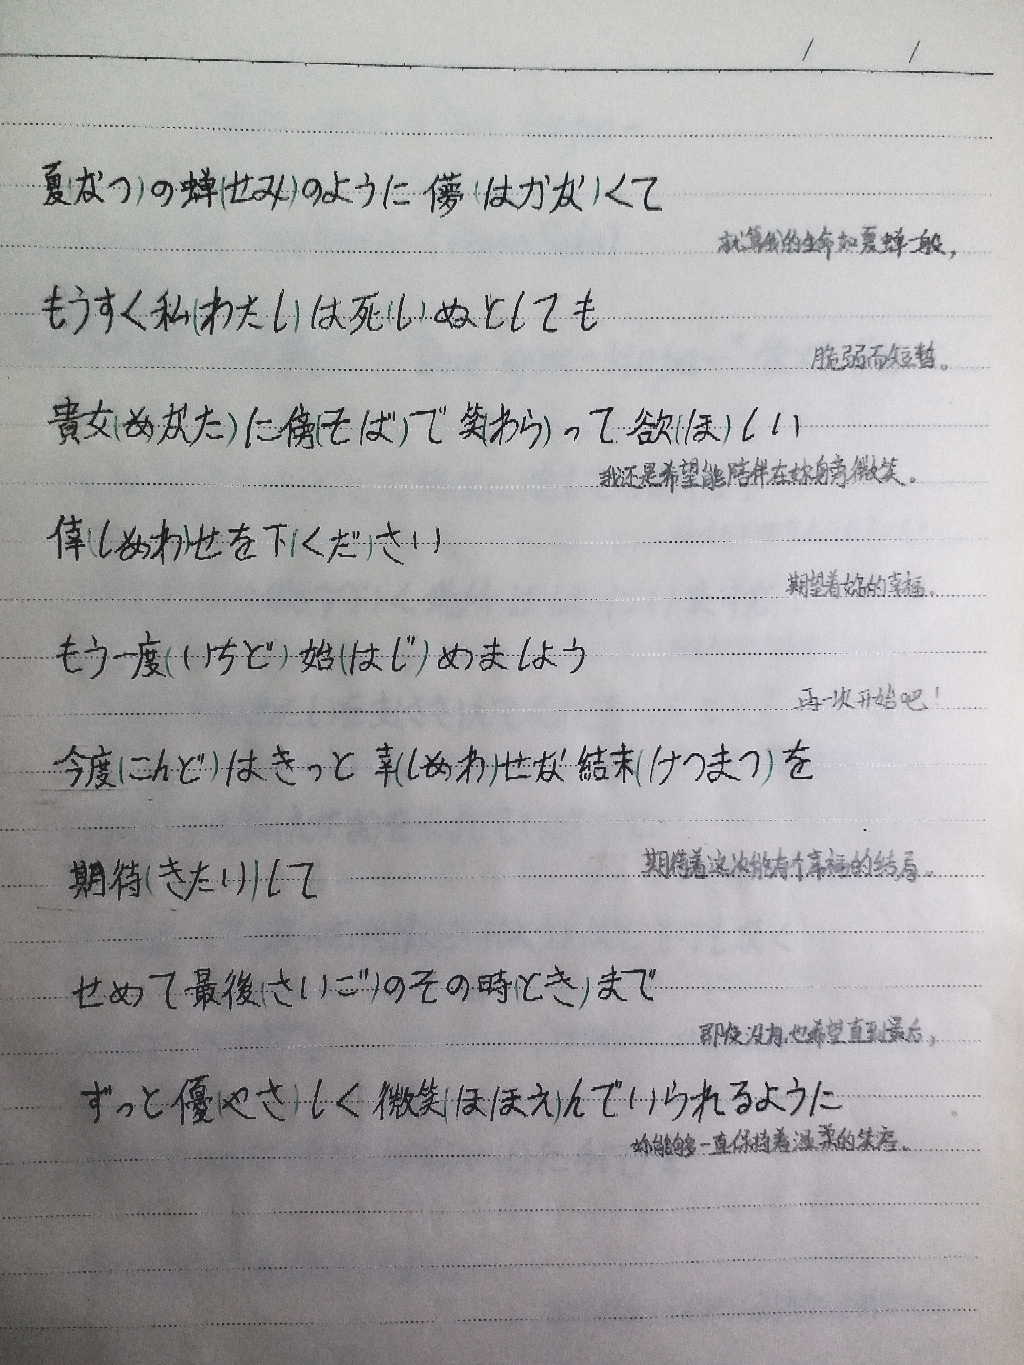 夏(なつ)の蝉(せみ)のように儚(はかな)くて
就算我的生命如夏蝉一般,
もうすく私(わたし)は死(し)ぬとしても
脆弱而短暂。
貴女(あなた)に傍(そば)で笑(わら)って欲(ほ)しい
我还是希望能陪伴在妳身旁微笑。
倖(しあわ)せを下(くだ)さい
期望着妳的幸福。
もう一度(いちど)始(はじ)めましょう
再一次开始吧!
今度(こんど)はきっと幸(しあわ)せな結末(けつまつ)を
期待(きたい)して
期待着这次能有个幸福的结局。
せめて最後(さいご)のその時(とき)まで
即使没有,也希望直到最后,
ずっと優(やさ)しく微笑(ほほえ)んでいられるように
妳能够一直保持着温柔的笑容。